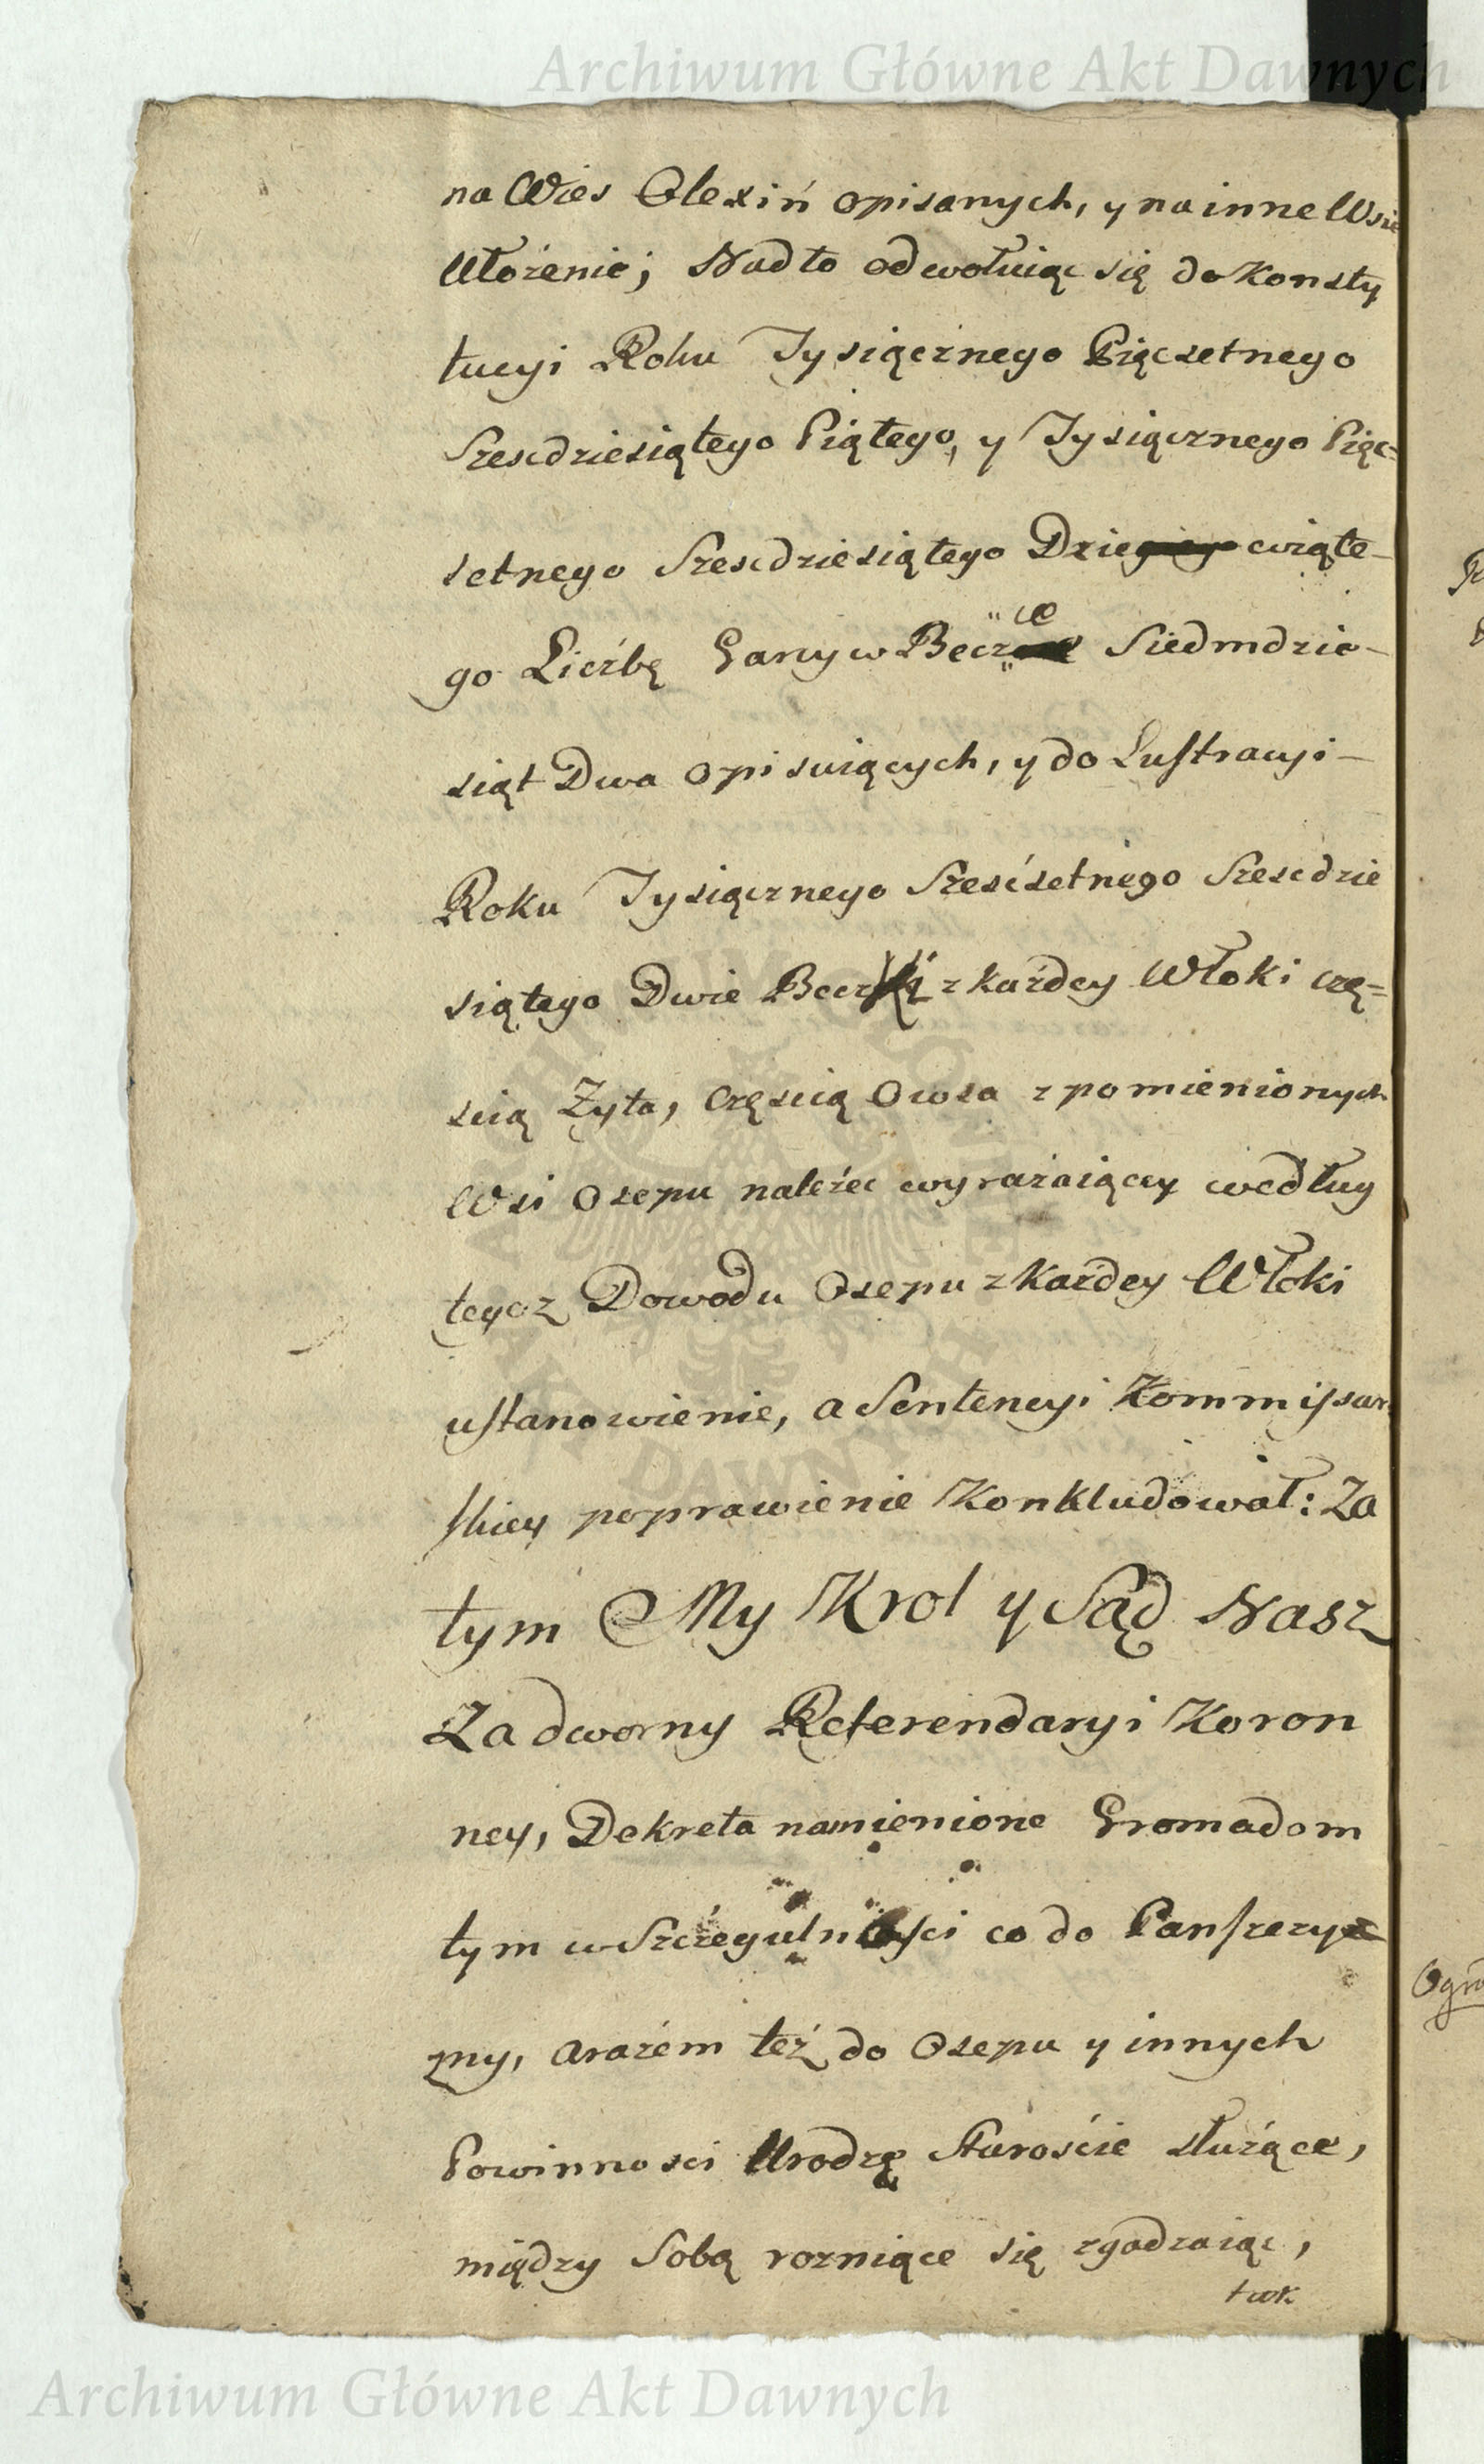 Archiwum Główne Akt Dawnych
na Wies Olexiń opisanych, y na inne Wsie
Ułożenie; Nadto odwołuiąc się do Konsty
tucyi Roku Tysiącznego Pięcsetnego
Szescdziesiątego Piątego, y Tysiącznego Pięc=
setnego Szescdziesiątego Dziewiąte-
go Liczbę Garcy w Becz "ce" Siedmdzie-
siąt Dwa opisuiących, y do Lustracyi-
Roku Tysiącznego Sześćsetnego Szescdzie
siątego Dwie Beczki z każdey Włoki czę=
scią Zyta, częscią Owsa z pomienionych
Wsi Osepu należec wyrażaiącey według
tegoz Dowodu Osepu z Każdey Włoki
ustanowienie, a Sentencyi Kommissar
skiey poprawienie Konkludował: Za
tym My Krol y Sąd Nasz
Zadworny Referendaryi Koron
ney, Dekreta namienione Gromadom
tym w Szczegulności co do Panszczy
zny, a razem też do Osepu y innych
Powinnosci Urodzę Staroście służące,
między Sobą rozniące się zgadzaiąc,
tak
Ogro
ARCHIWUM GŁÓWNE AKT DAWNYCH
Archiwum Główne Akt Dawnych